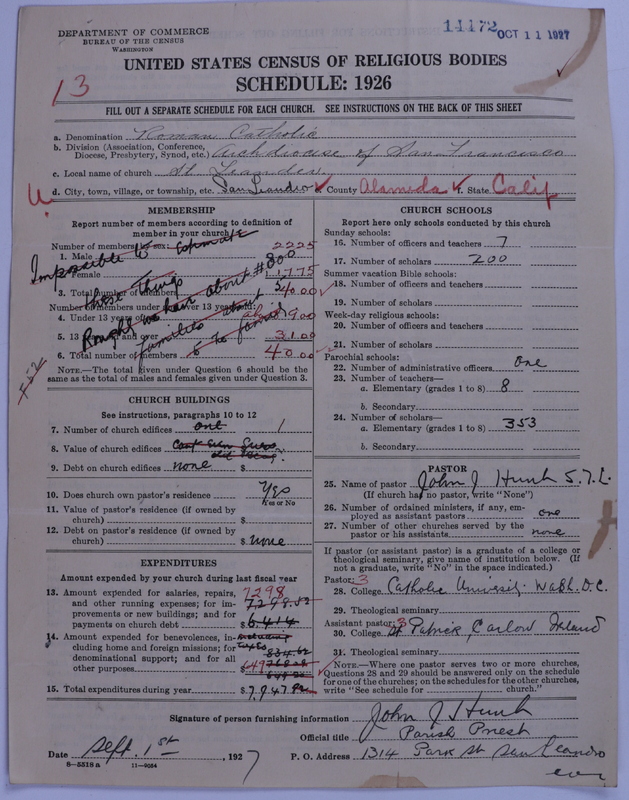 DEPARTMENT OF COMMERCE
BUREAU OF THE CENSUS
WASHINGTON
14472 OCT 11 1927
UNITED STATES CENSUS OF RELIGIOUS BODIES
SCHEDULE: 1926
13
FILL OUT A SEPARATE SCHEDULE FOR EACH CHURCH. SEE INSTRUCTIONS ON THE BACK OF THIS SHEET
a. Denomination Roman Catholic
b. Division (Association, Conference, Diocese, Presbytery, Synod, etc.) Archdiocese of San Francisco
c. Local name of church St Leanders
d. City, town, village, or township, etc. San Leandro County Alameda State Calif
U.
MEMBERSHIP
Report number of members according to definition of member in your church
Number of members by sex:
1. Male 2225
2. Female 1775
3. Total number of members 4000
Number of members under and over 13 years
4. Under 13 years of age 900
5. 13 years and over 3100
6. Total number of members 4000
Impossible to estimate
these things
Roughly we have about 800
families about
5 to family
NOTE.—The total given under Question 6 should be the same as the total of males and females given under Question 3.
CHURCH BUILDINGS
See instructions, paragraphs 10 to 12
7. Number of church edifices one 1
8. Value of church edifices
9. Debt on church edifices none $
10. Does church own pastor's residence Yes
Yes or No
11. Value of pastor's residence (if owned by church) $
12. Debt on pastor's residence (if owned by church) $ none
EXPENDITURES
Amount expended by your church during last fiscal year
13. Amount expended for salaries, repairs, and other running expenses; for improvements or new buildings; and for payments on church debt
7298
7,298.52
$6,414
14. Amount expended for benevolences, including home and foreign missions; for denominational support; and for all other purposes
649
15. Total expenditures during year $7,947.
CHURCH SCHOOLS
Report here only schools conducted by this church
Sunday schools:
16. Number of officers and teachers 7
17. Number of scholars 200
Summer vacation Bible schools:
18. Number of officers and teachers
19. Number of scholars
Week-day religious schools:
20. Number of officers and teachers
21. Number of scholars
Parochial schools:
22. Number of administrative officers one
23. Number of teachers—
a. Elementary (grades 1 to 8) 8
b. Secondary
24. Number of scholars—
a. Elementary (grades 1 to 8) 353
b. Secondary
PASTOR
25. Name of pastor John J Hunt S.T.L.
(If church has no pastor, write "None")
26. Number of ordained ministers, if any, employed as assistant pastors one
27. Number of other churches served by the pastor or his assistants none
If pastor (or assistant pastor) is a graduate of a college or theological seminary, give name of institution below. (If not a graduate, write "No" in the space indicated.)
Pastor: 3
28. College Catholic University Wash. D.C.
29. Theological seminary
Assistant pastor: 3
30. College St Patrick Carlow Ireland
31. Theological seminary
NOTE.—Where one pastor serves two or more churches, Questions 28 and 29 should be answered only on the schedule for one of the churches; on the schedules for the other churches, write "See schedule for church."
Signature of person furnishing information John J Hunt
Official title Parish Priest
Date Sept. 1st, 1927 P. O. Address 1314 Park St San Leandro
8-5518 a 11-9054